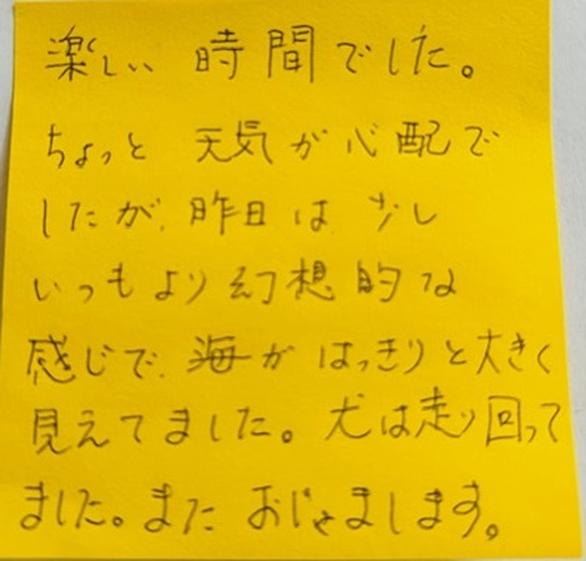 楽しい 時間でした。
ちょっと 天気が心配で
したが、昨日は 少し
いつもより幻想的な
感じで、海が はっきりと大きく
見えてました。犬は走り回って
ました。また おじゃまします。